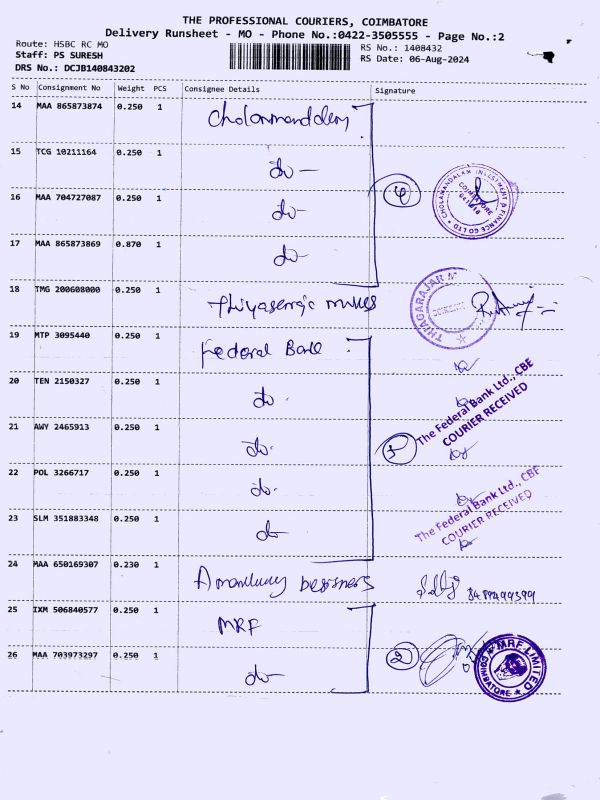 THE PROFESSIONAL COURIERS, COIMBATORE
Delivery Runsheet - MO - Phone No.:0422-3505555 - Page No.:2
Route: HSBC RC MO
Staff: PS SURESH
DRS No.: DCJB140843202
RS No.: 1408432
RS Date: 06-Aug-2024
S No Consignment No Weight PCS Consignee Details Signature
14 MAA 865873874 0.250 1
15 TCG 10211164 0.250 1 do
16 MAA 704727087 0.250 1 do
4
CHOLAMANDALAM INVESTMENT & FINANCE CO LTD
COIMBATORE
17 MAA 865873869 0.870 1 do
18 TMG 200608000 0.250 1
THIAGARAJAR
19 MTP 3095440 0.250 1 Federal Bank
20 TEN 2150327 0.250 1 do
The Federal Bank Ltd., CBE
COURIER RECEIVED
21 AWY 2465913 0.250 1 do
5
22 POL 3266717 0.250 1 do
The Federal Bank Ltd., CBE
COURIER RECEIVED
23 SLM 351883348 0.250 1 do
24 MAA 650169307 0.230 1
25 IXM 506840577 0.250 1 MRF
26 MAA 703973297 0.250 1 do
2
MRF LIMITED
COIMBATORE